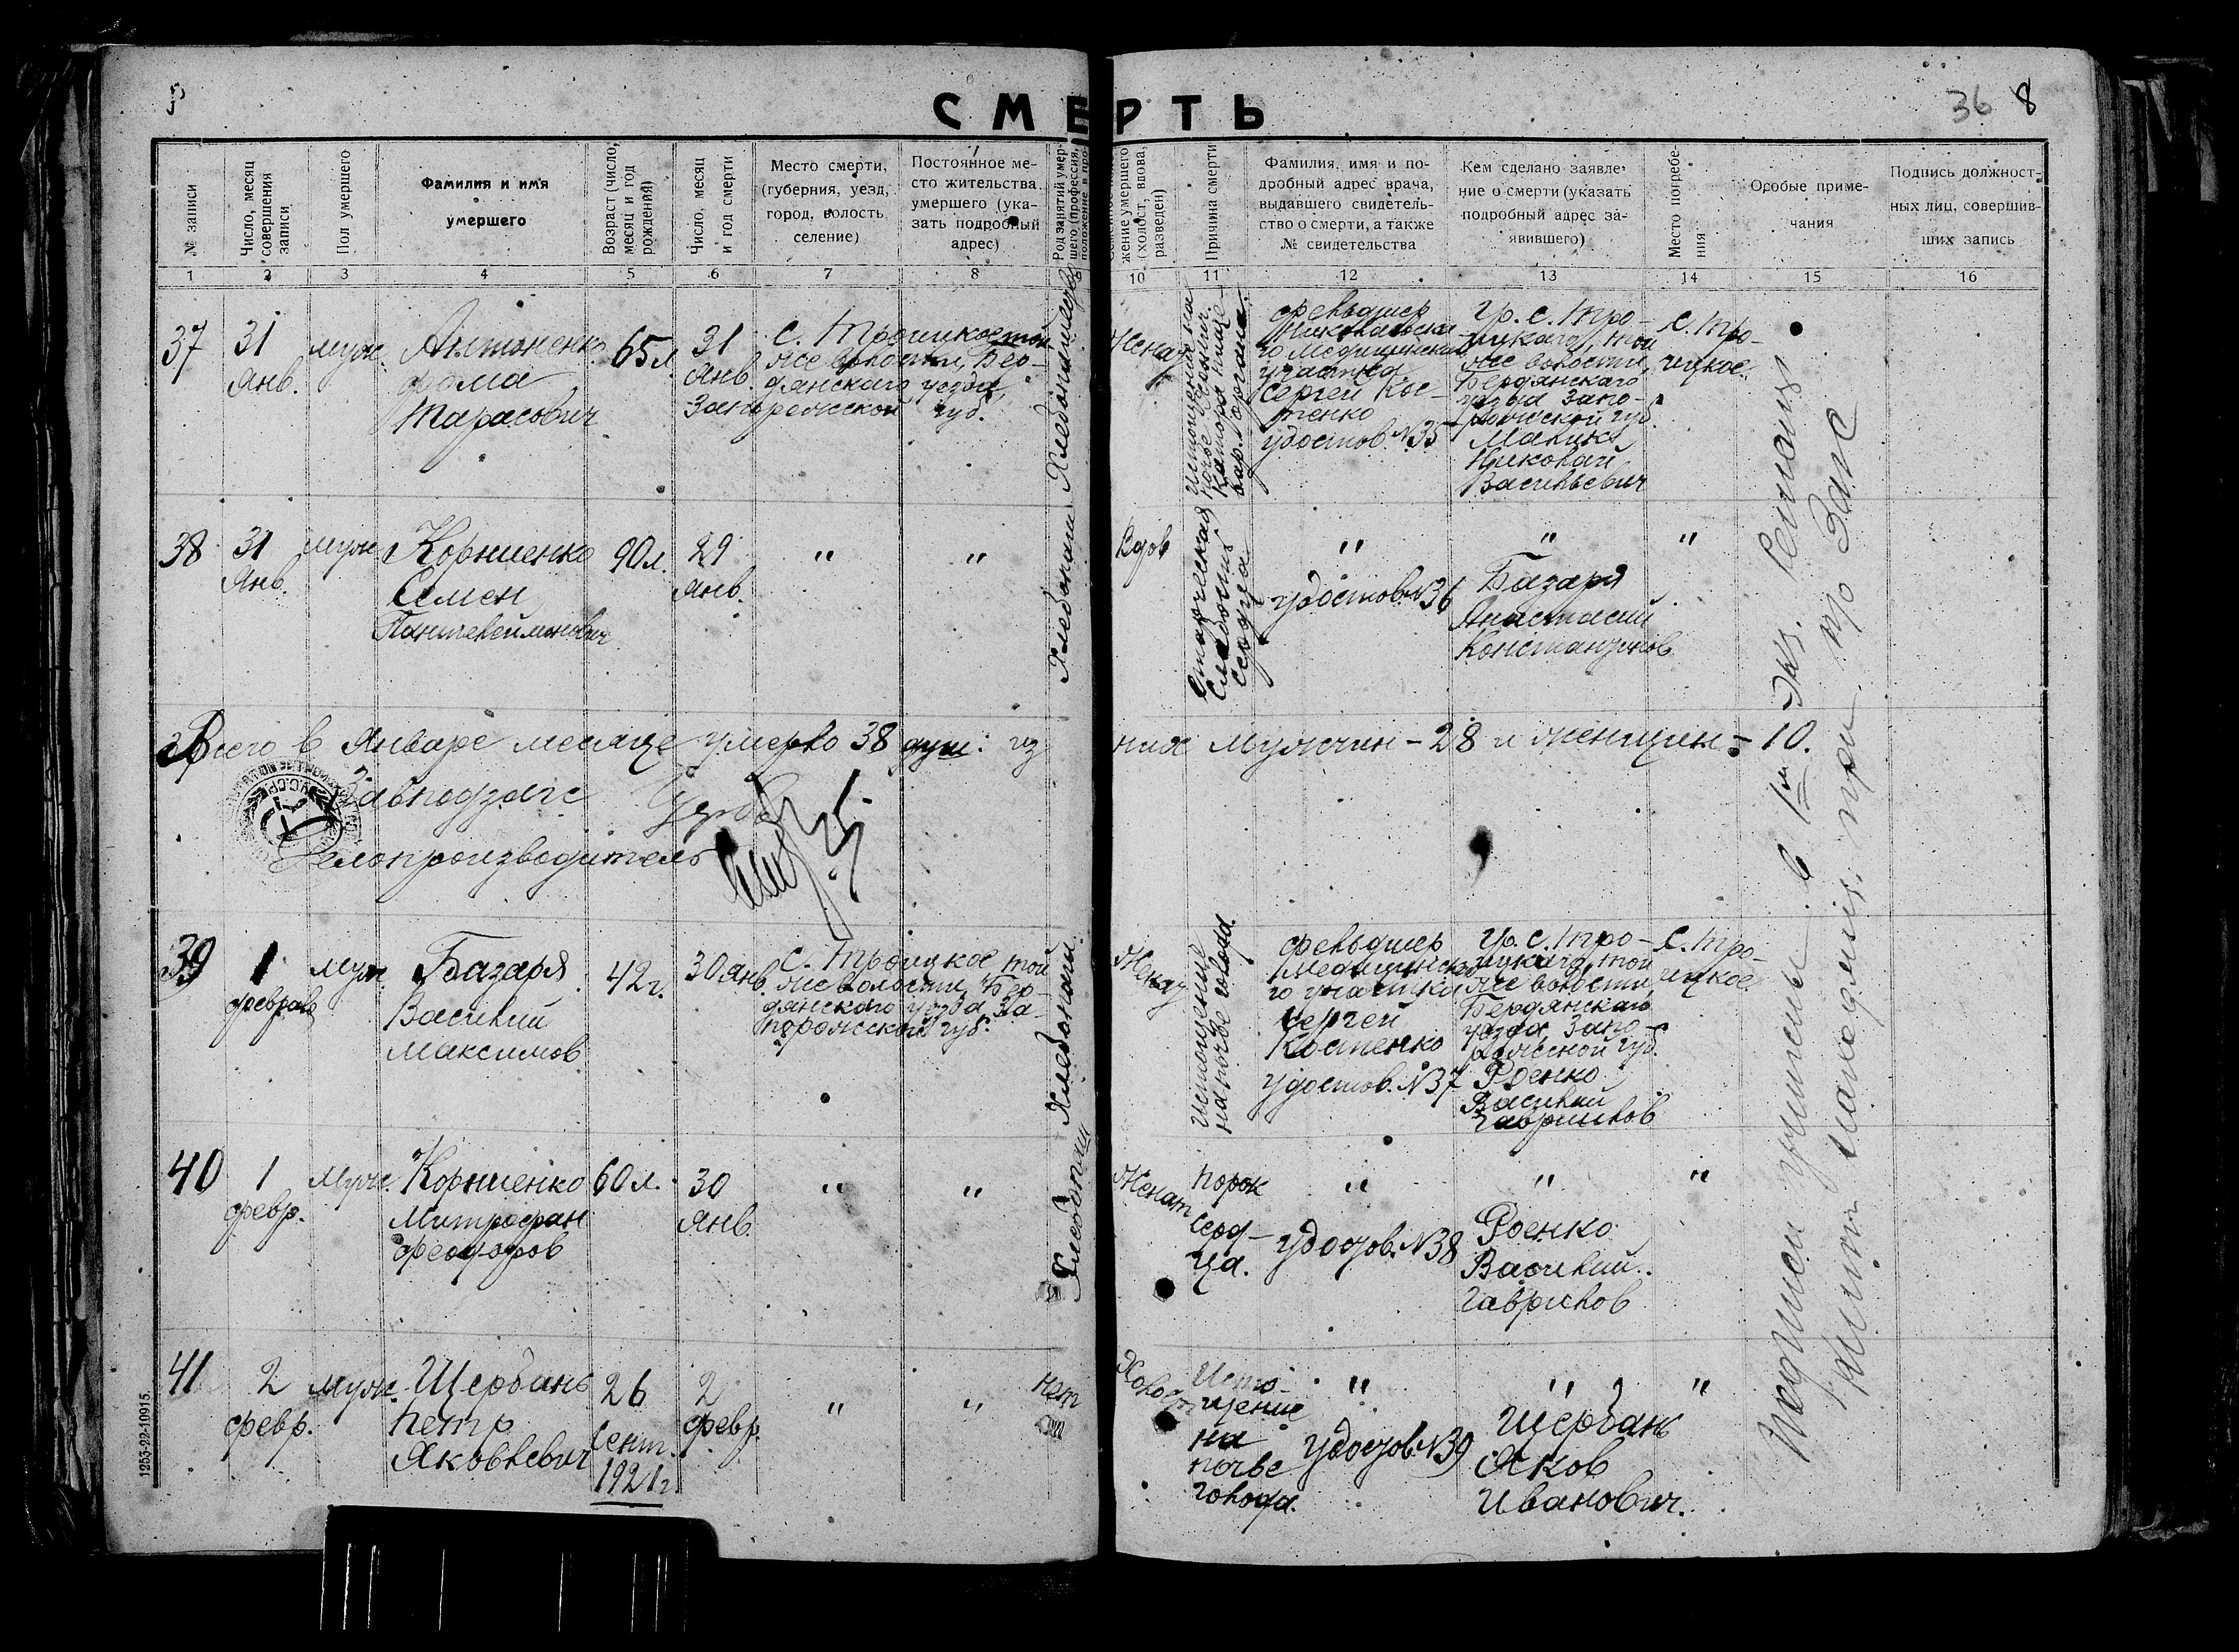 СМЕРТЬ
36 8
№ записи
Число, месяц совершения записи
Пол умершего
Фамилия и имя умершего
Возраст (число, месяц и год рождения)
Число, месяц и год смерти
Место смерти, (губерния, уезд, город, волость селение)
Постоянное место жительства умершего (указать подробный адрес)
Род занятий умершего (профессия, положение в про-
жение умершего (холост, вдова, разведен)
Причина смерти
Фамилия, имя и подробный адрес врача, выдавшего свидетельство о смерти, а также № свидетельства
Кем сделано заявление о смерти (указать подробный адрес заявившего)
Место погребения
Особые примечания
Подпись должностных лиц, совершивших запись
1 2 3 4 5 6 7 8 9 10 11 12 13 14 15 16
37
31 Янв.
муж.
Антоненко
Фома
Тарасович
65 л
31 Янв.
с. Троицкое той
же волости, Бер-
дянскаго уезда,
Запорежской губ.
Хлебопашец
Женат
Истощение на
почве
фельдшер
Сергей Кос-
тенко
удостов. № 35
Гр. с. Тро-
ицкаго, той
же волости,
Бердянскаго
уезда Запо-
рожской губ.
Николай
Васильевич
с. Тро-
ицкое.
38
31 Янв.
муж
Корниенко
Семен
Пантелеймонович
90 л.
29 Янв.
" "
Хлебопаш
Вдов
Старческая
слабость
сердца
"
удостов. № 36
"
Базаря
Анастасий
Константинов
"
Всего в Январе месяце умерло 38 душ: из них мужчин - 28 и женщин - 10.
Завподзагс
Делопроизводитель
39
1 февраля
муж.
Базаря
Василий
Максимов
42 г.
30 янв.
с. Троицкое той
же волости, Бер-
дянского уезда За-
порожской губ.
Хлебопаш.
Женат
Истощение
на почве голода.
фельдшер
Медицинско-
го участка
Сергей
Костенко
удостов. № 37
Гр. с. Тро-
ицкаго, той
же волости,
Бердянскаго
уезда, Запо-
рожской губ.
Роенко
Василий
Гаврилов
с. Тро-
ицкое
40
1 февр.
муж.
Корниенко
Митрофан
Феодоров
60 л.
30 Янв.
" "
Хлебопаш
Женат
Порок
серд-
ца.
"
удостов. № 38
"
Роенко
Василий
Гаврилов
"
41
2 февр.
муж.
Щербань
Петр
Яковлевич
26
Сент.
1921 г
2 февр.
" "
нет
Холост
Исто-
щение
на
почве
голода.
"
удостов. № 39
"
Щербань
Яков
Иванович.
"
Подписи учинены в 1м экз.
1253-22-10915.